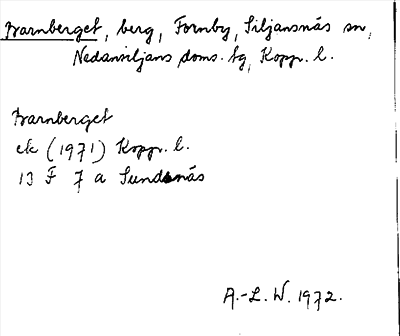 Barnberget, berg, Fornby, Siljansnäs sn,
Nedansiljans doms. tg, Kopp. l.
Barnberget
ek (1971) Kopp. l.
13 F 7 a Sundsnäs
A.-L. W. 1972.